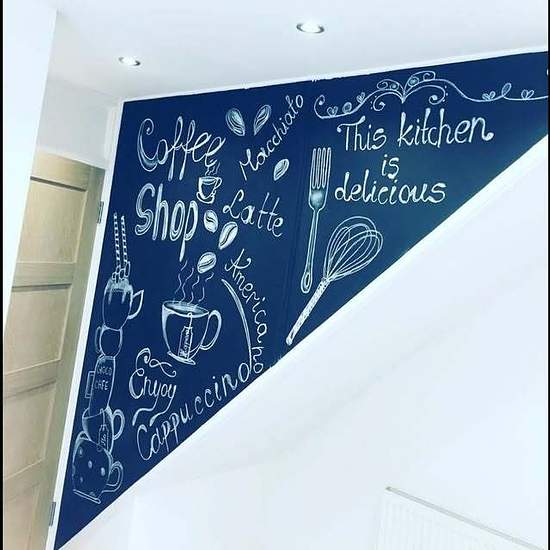 Coffee
Shop
Macchiato
Latte
Americano
Enjoy
Cappuccino
CHOCO
CAFE
This kitchen
is
delicious